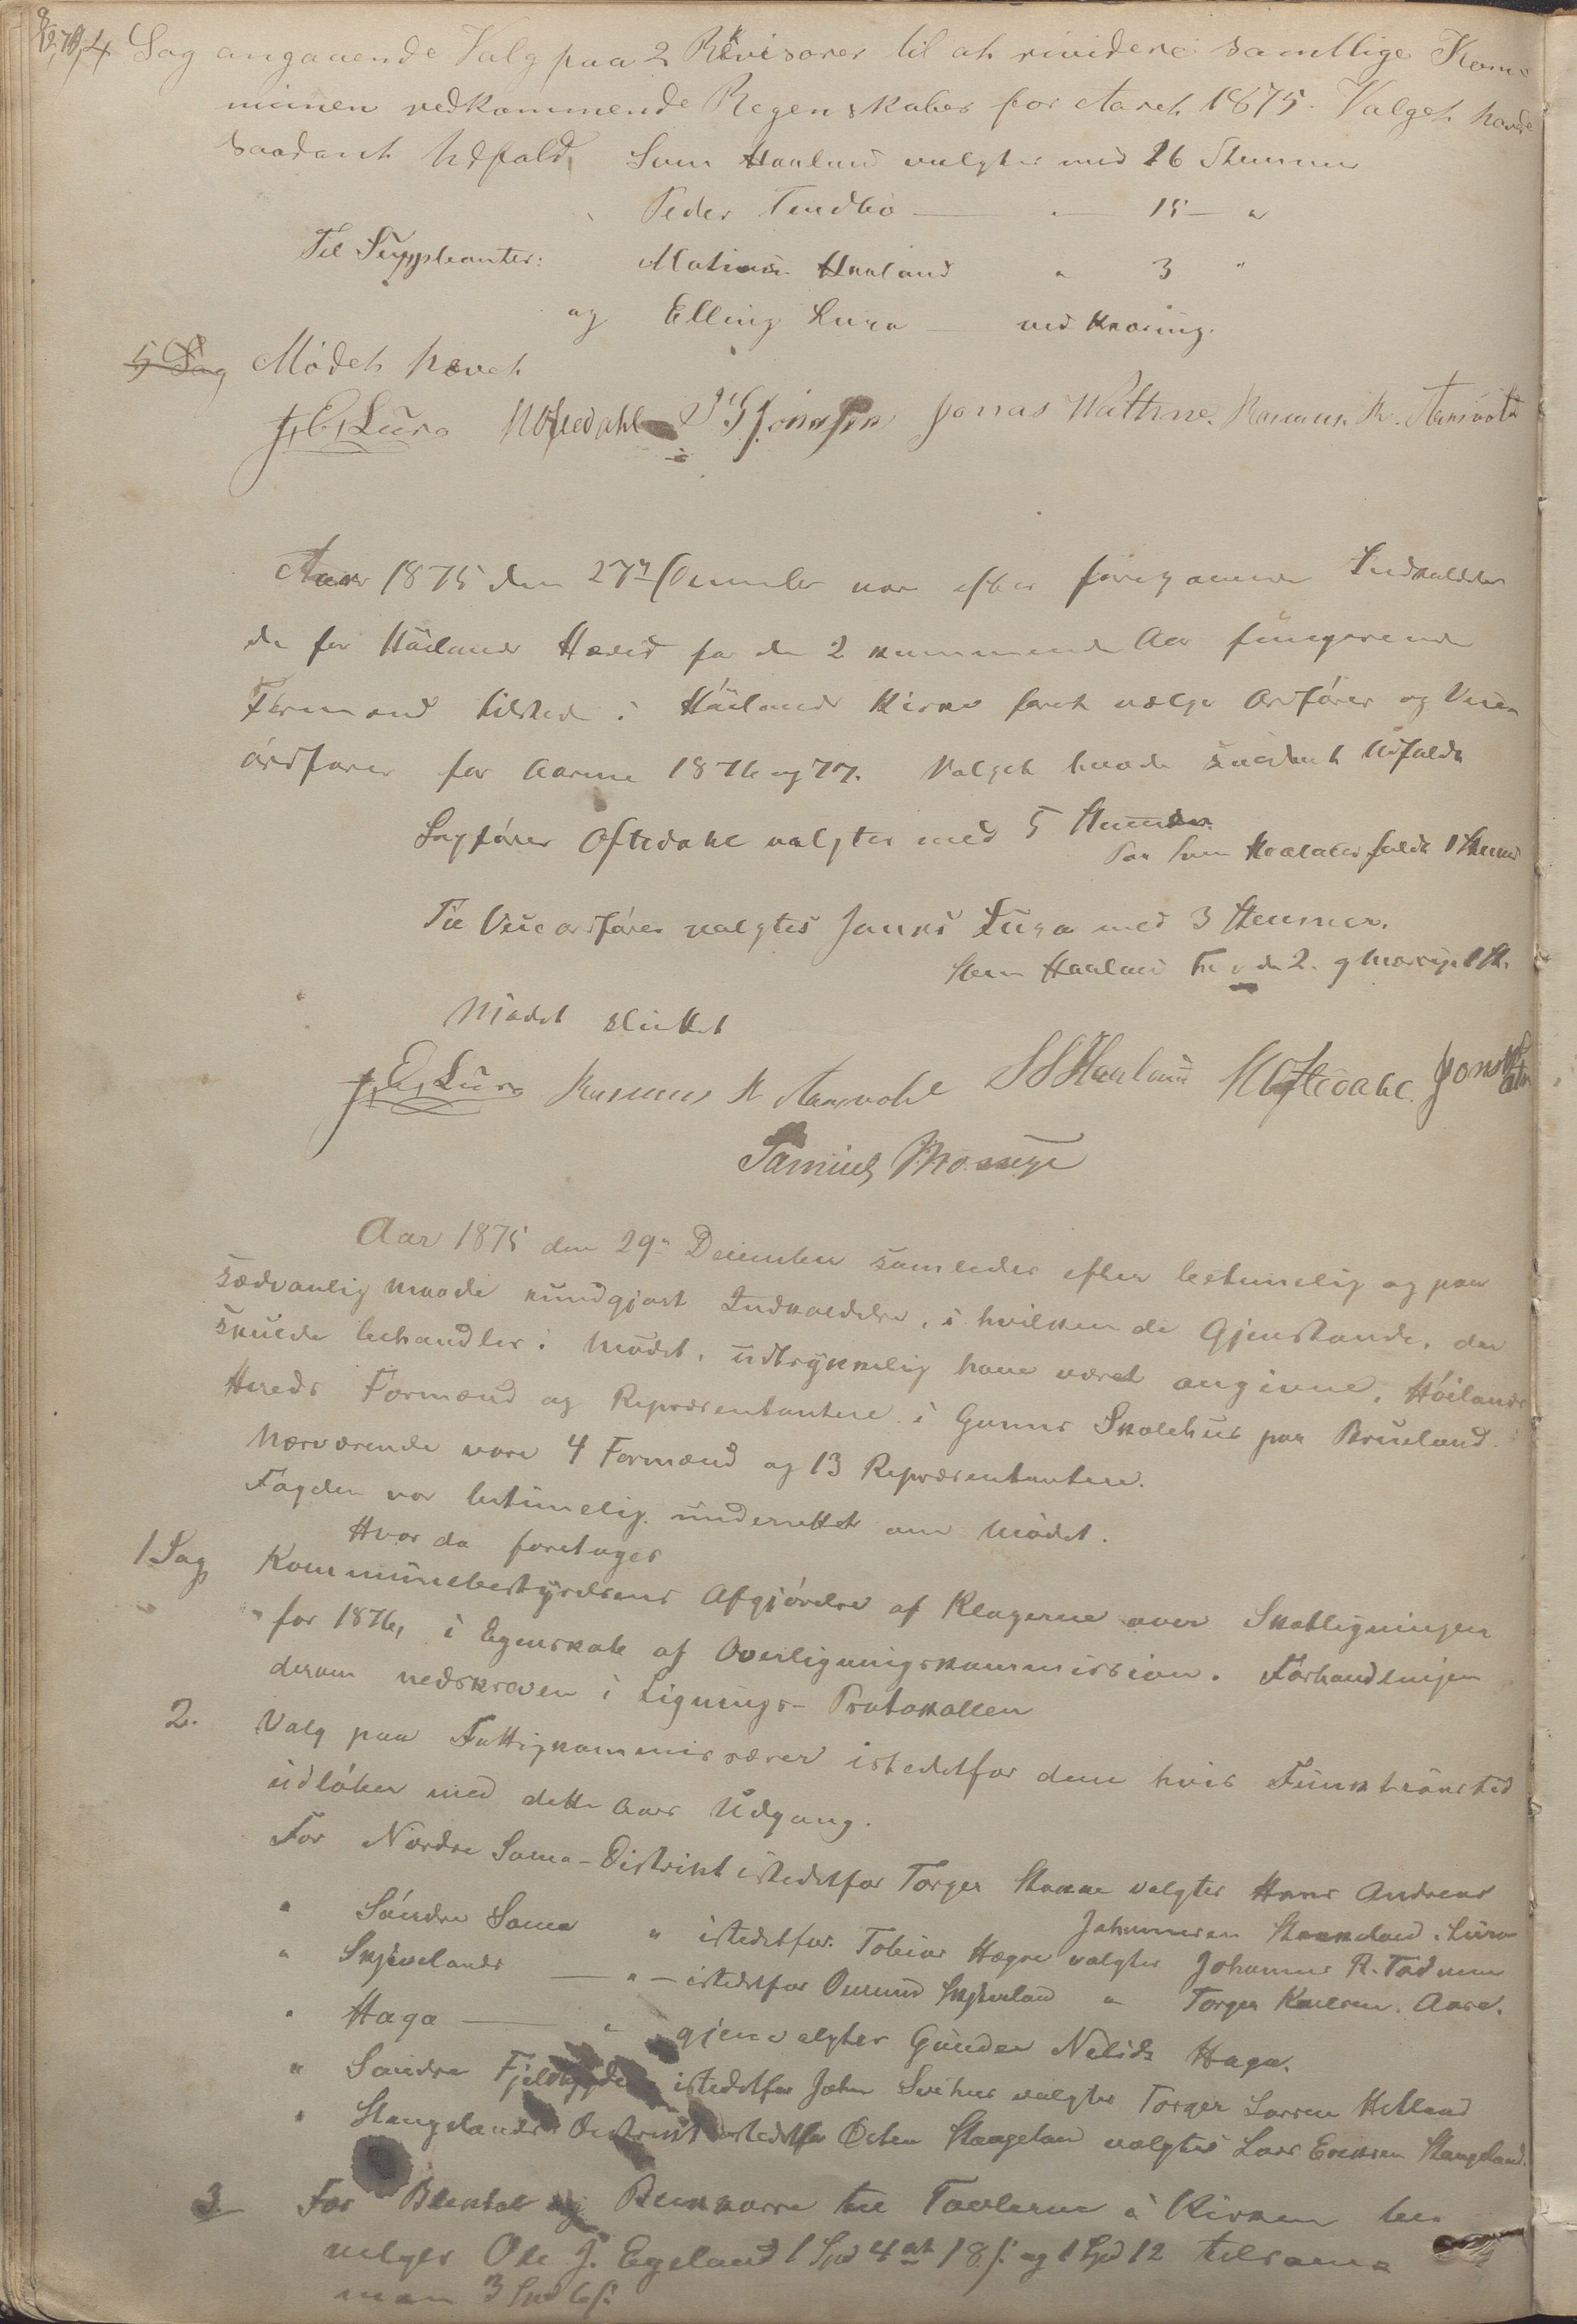 4 Sag angaaende Valg paa 2 Revisorer til at rividere samtlige Kom-
munen vedkommende Regenskaber for Aaret 1875. Valget havde
saadant Udfald, Sven Haaland valgtes med 16 Stemmer
Peder Tendbø — " — 15 — "
Til Suppleanter: Mathias Haaland " 3 "
og Elling Lura — ved Kaaring.
5 Sag Mødet hævet
J. E. Lura N Oftedahl Jonas Wathne. Rasmus R. Aarsvold
Aar 1875 den 27de December var efter foregaaende Indkaldelse
de for Høilands Hered for de 2 kommende Aar fungerende
Formænd tilstede i Høilands Kirke foret vælge Ordfører og Vice
ordfører for Aarene 1876 og 77. Valget havde saadant Udfald
Sagfører Oftedahl valgtes med 5 Stemmer.
Paa Sven Haaland faldt 1 Stemme
Til Viceordfører valgtes Jonas Lura med 3 Stemmer.
Sven Haaland fik de 2. og Mossige 1 St.
Mødet sluttet
J. E. Lura Rasmus R Aarsvold S S Haaland N Oftedahl. Jonas Wathne
Samuel Mossige
Aar 1875 den 29de December samledes efter betimelig og paa
sædvanlig Maade kundgjort Indkaldelse, i hvilken de Gjenstande, der
skulde behandles i Mødet, udtrykkelig have været angivne, Høilands
Hereds Formænd og Repræsentantere i Ganns Skolehus paa Brueland.
Nærværende vare 4 Formænd og 13 Repræsentantere.
Fogden var betimelig underrettet om Mødet.
Hvor da foretoges
1 Sag Kommunebestyrelsens Afgjørelse af Klagerne over Skatligningen
for 1876, i Egenskab af Overligningskommission. Forhandlingen
derom nedskreven i Lignings-Protokollen
2. Valg paa Fattigkommissærer istedetfor dem hvis Funktionstid
udløber med dette Aars Udgang.
For Nordre Soma-Distrikt istedetfor Torger Stokke valgtes Hans Andreas
Johannesen Stokkeland, Lura
" Søndre Soma " istedetfor Tobias Hogne valgtes Johannes R. Todnem
" Skjævelands — " — istedetfor Omund Skjæveland " Torger Knudsen Aase.
" Haga — " gjenvalgtes Gunder Neliks Haga.
" Søndre Fjeldbygden istedetfor John Svihus valgtes Torger Larsen Hetland
" Stangelands Distrikt istedetfor Osten Stangeland valgtes Lars Eriksen Stangeland.
3 For Blekhol og Blikkorre til Tavlerne i Kirken be-
vilges Ole J. Egeland 1 Spd 4 ort 18 s. og 1 Spd 12 tilsam-
men 3 Spd 6 s.